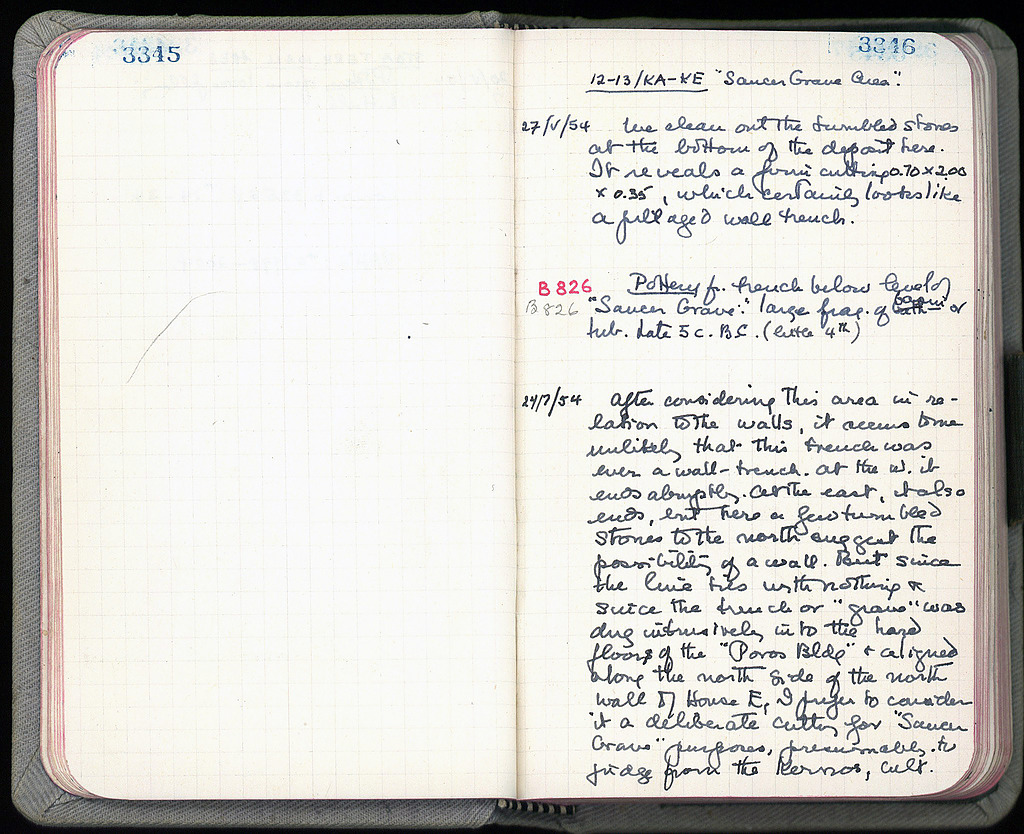 3345
3346
12-13/KA-KE "Saucer Grave Area".
27/V/54 We clean out the tumbled stones
at the bottom of the deposit here.
It reveals a firm cutting 0.70 × 2.00
× 0.35, which certainly looks like
a pillaged wall trench.
B 826 Pottery fr. trench below level of
B 826 "Saucer Grave": large frag. of basin or
tub. Date 5 c. B.C. (little 4th)
24/7/54 After considering this area in re-
lation to the walls, it seems to me
unlikely that this trench was
ever a wall-trench. At the W. it
ends abruptly. At the east, it also
ends, but here a few tumbled
stones to the north suggest the
possibility of a wall. But since
the line ties with nothing &
since the trench or "grave" was
dug intrusively into the hard
floors of the "Poros Bldg" & aligned
along the north side of the north
wall of House E, I prefer to consider
it a deliberate cutting for "Saucer
Grave" purposes, presumably, to
judge from the Kernos, cult.